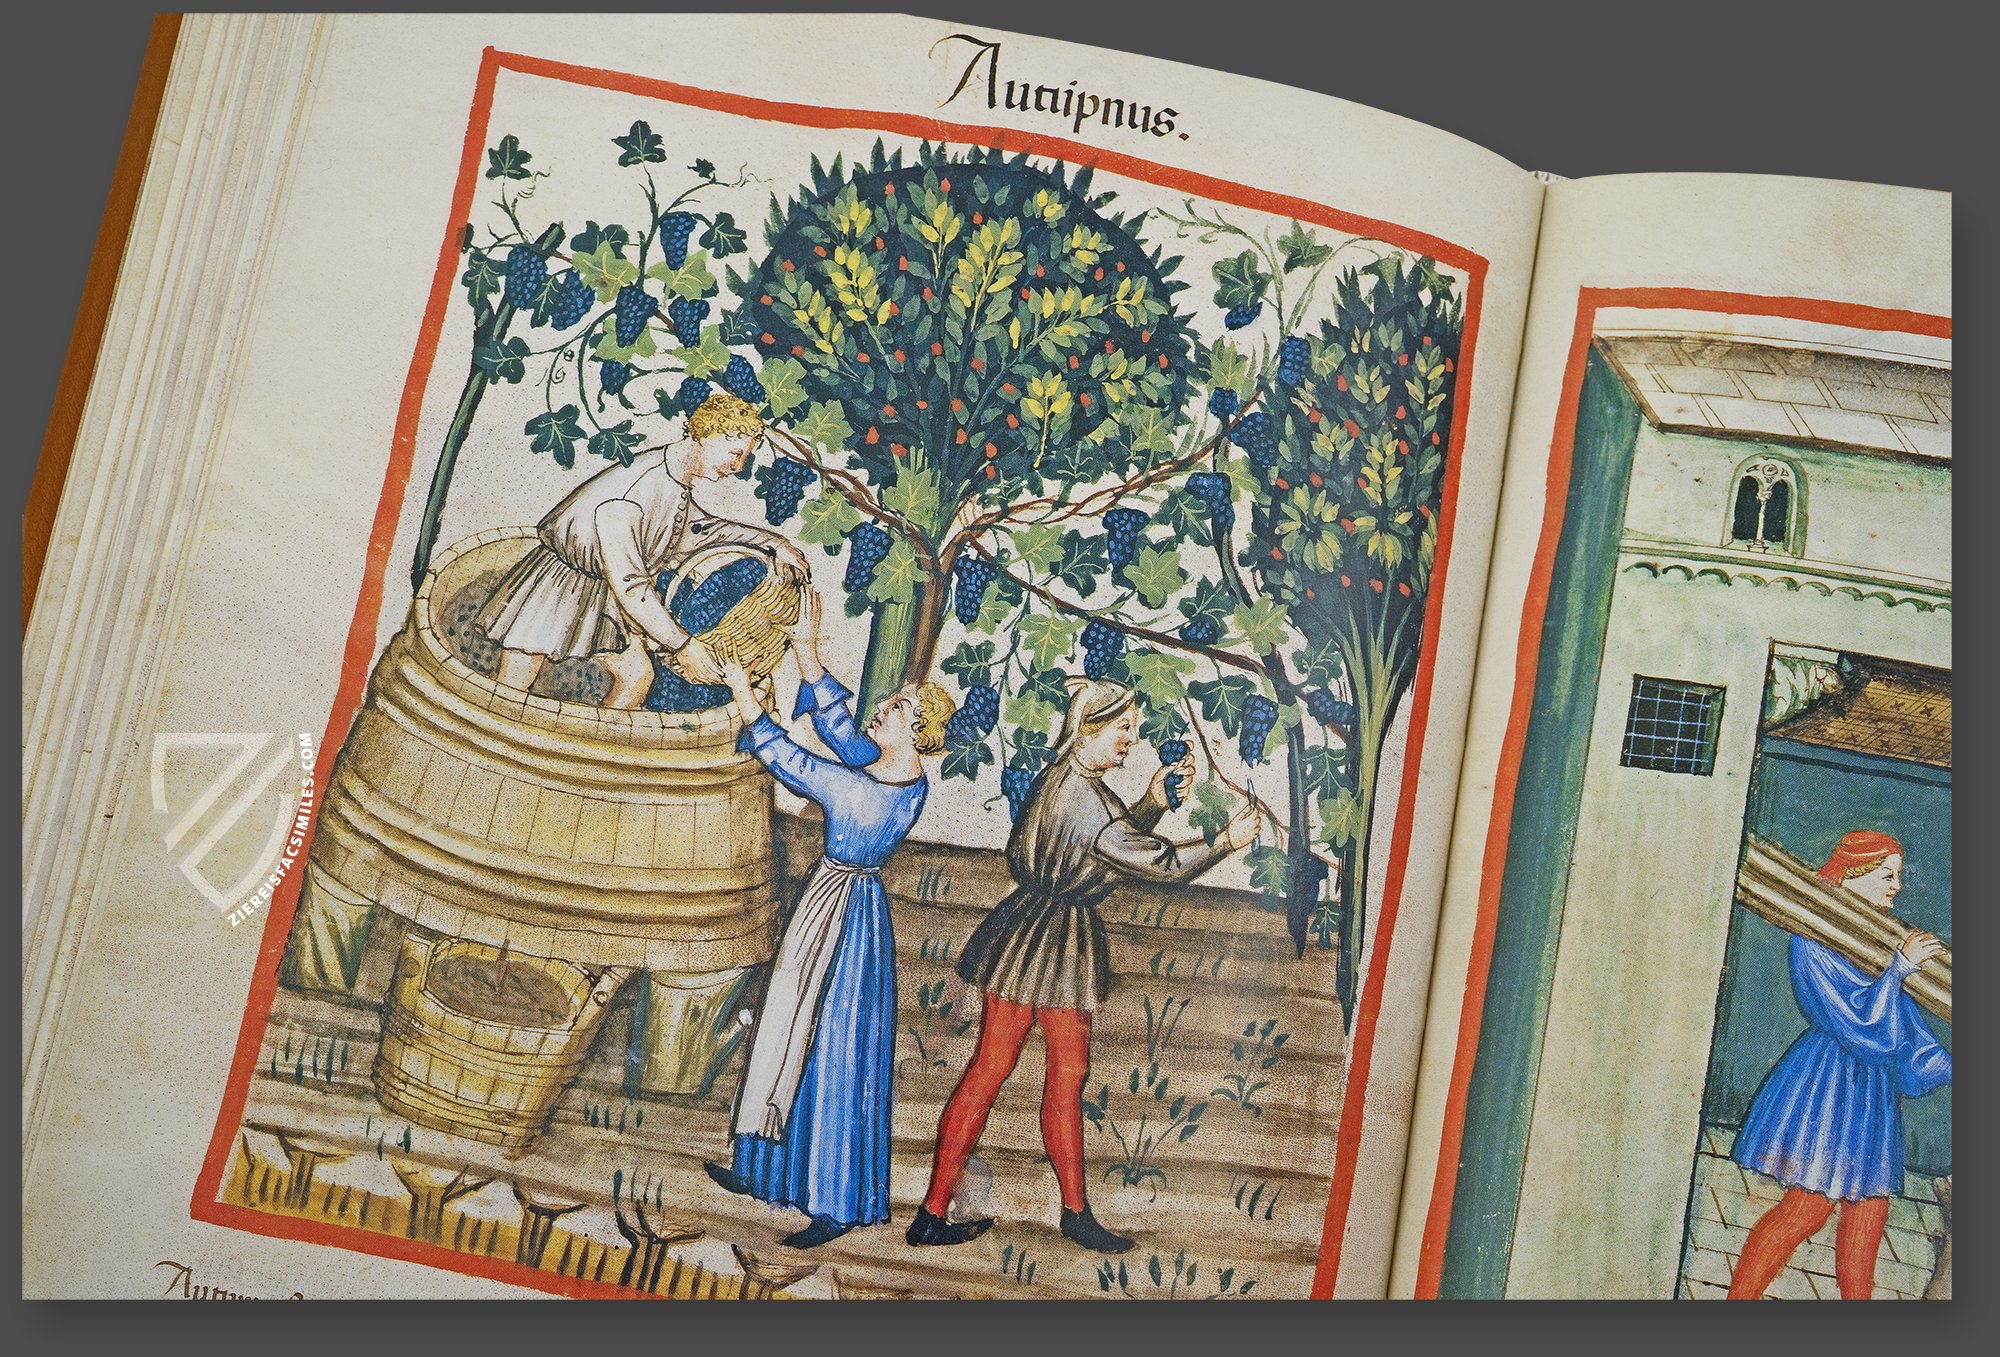 Autūpnus.
ZIEREISFACSIMILES.COM